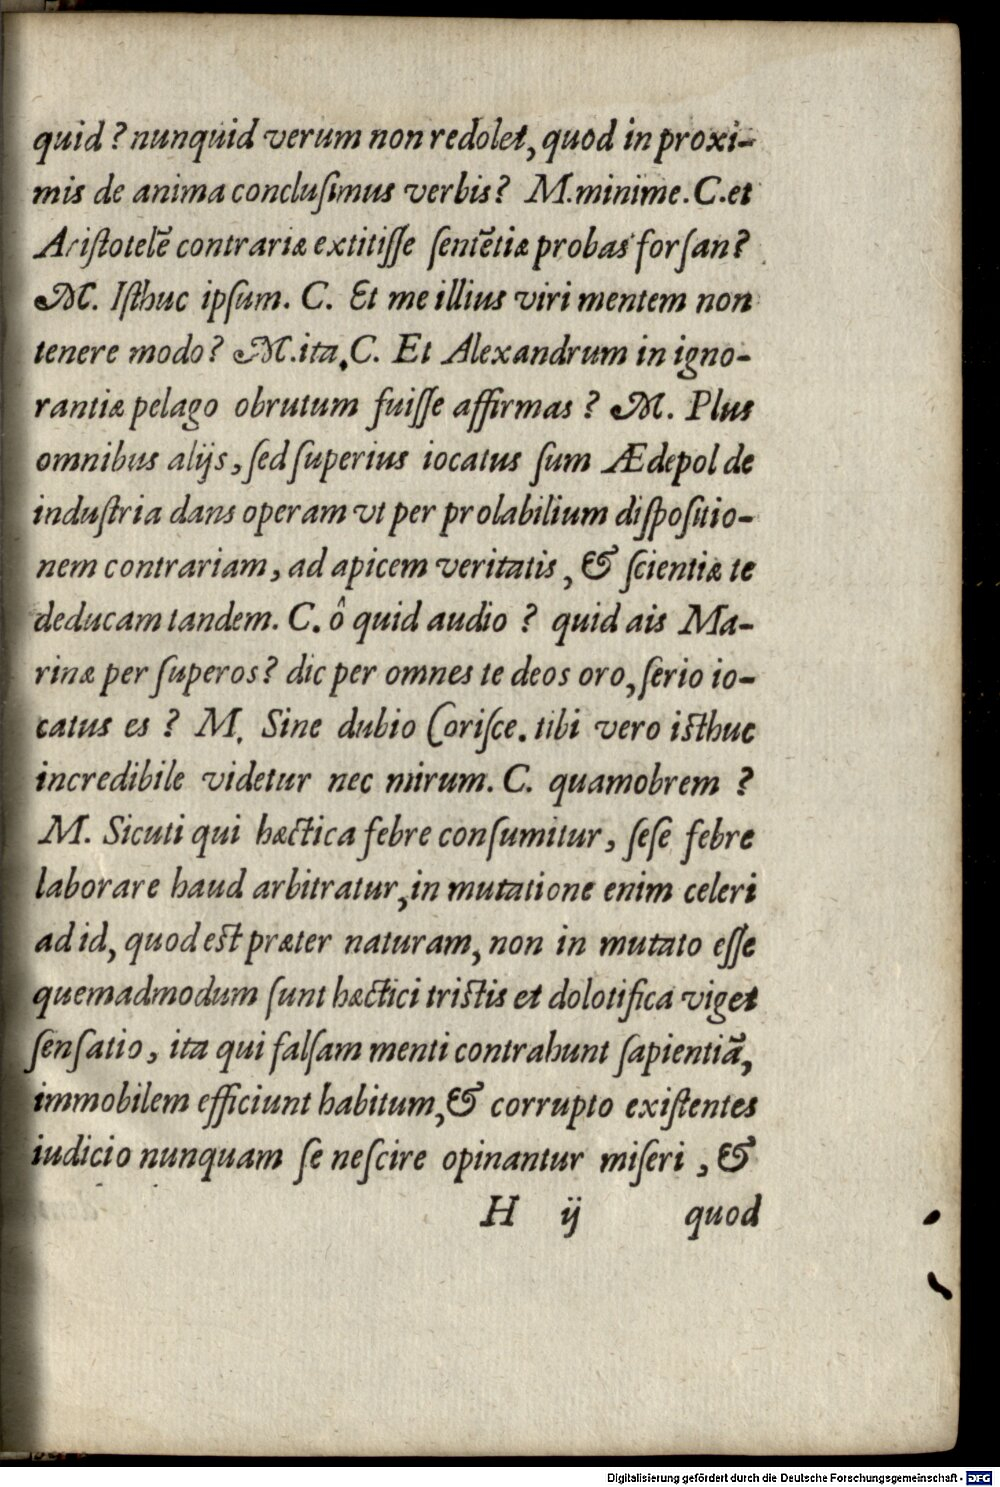 quid ? nunquid verum non redolet, quod in proxi-
mis de anima conclusimus verbis? M.minime.C.et
Aristotelē contrariæ extitisse sentētiæ probas forsan?
M. Isthuc ipsum. C. Et me illius viri mentem non
tenere modo? M.ita.C. Et Alexandrum in igno-
rantiæ pelago obrutum fuisse affirmas ? M. Plus
omnibus alijs, sed superius iocatus sum Ædepol de
industria dans operam vt per prolabilium dispositio-
nem contrariam, ad apicem veritatis, & scientiæ te
deducam tandem. C. ô quid audio ? quid ais Ma-
rinæ per superos? dic per omnes te deos oro, serio io-
catus es ? M. Sine dubio Corisce. tibi vero isthuc
incredibile videtur nec mirum. C. quamobrem ?
M. Sicuti qui hæctica febre consumitur, sese febre
laborare haud arbitratur, in mutatione enim celeri
ad id, quod est præter naturam, non in mutato esse
quemadmodum sunt hæctici tristis et dolotifica viget
sensatio, ita qui falsam menti contrahunt sapientiā,
immobilem efficiunt habitum, & corrupto existentes
iudicio nunquam se nescire opinantur miseri , &
H ij quod
Digitalisierung gefördert durch die Deutsche Forschungsgemeinschaft - DFG